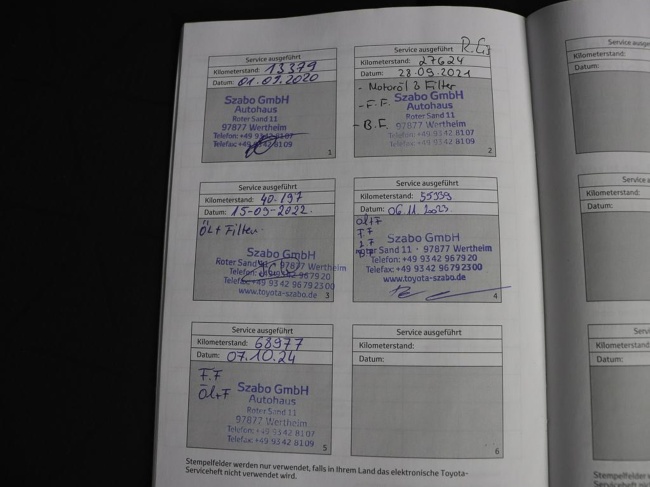 Service ausgeführt
Kilometerstand: 13379
Datum: 01.09.2020
Szabo GmbH
Autohaus
Roter Sand 11
97877 Wertheim
Telefon: +49 93 42 81 07
Telefax: +49 93 42 81 09
1
Service ausgeführt
Kilometerstand: 27624
Datum: 28.09.2021
- Motoröl & Filter
- F.F.
- B.F.
Szabo GmbH
Autohaus
Roter Sand 11
97877 Wertheim
Telefon: +49 93 42 81 07
Telefax: +49 93 42 81 09
2
Service ausgeführt
Kilometerstand: 40.197
Datum: 15-09-2022.
Öl + Filter.
Szabo GmbH
Roter Sand 11 · 97877 Wertheim
Telefon: +49 93 42 96 79 20
Telefax: +49 93 42 96 79 23 00
www.toyota-szabo.de
3
Service ausgeführt
Kilometerstand:
Datum: 06 11 2023
Öl+F
Szabo GmbH
Roter Sand 11 · 97877 Wertheim
Telefon: +49 93 42 96 79 20
Telefax: +49 93 42 96 79 23 00
www.toyota-szabo.de
4
Service ausgeführt
Kilometerstand: 68977
Datum: 07.10.24
F.F
Öl+F
Szabo GmbH
Autohaus
Roter Sand 11
97877 Wertheim
Telefon: +49 93 42 81 07
Telefax: +49 93 42 81 09
5
Service ausgeführt
Kilometerstand:
Datum:
6
Stempelfelder werden nur verwendet, falls in Ihrem Land das elektronische Toyota-
Serviceheft nicht verwendet wird.
Kilometerstand:
Datum:
Kilometerstand:
Datum:
Kilometerstand:
Datum:
Stempelfelder werden
Serviceheft nicht